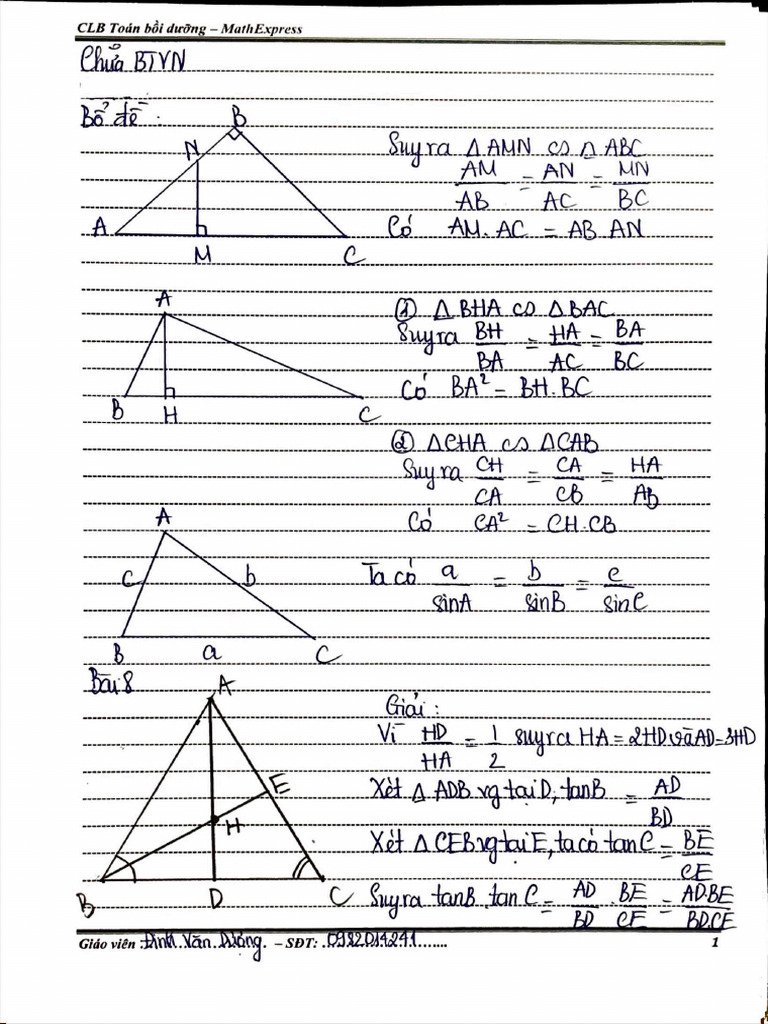 CLB Toán bồi dưỡng – MathExpress
Chữa BTVN
Bổ đề :
B
N
A
M
C
Suy ra △AMN ∽ △ABC
AM/AB = AN/AC = MN/BC
Có AM.AC = AB.AN
A
B
H
C
① △BHA ∽ △BAC
Suy ra BH/BA = HA/AC = BA/BC
Có BA² = BH.BC
② △CHA ∽ △CAB
Suy ra CH/CA = CA/CB = HA/AB
Có CA² = CH.CB
A
c
b
B
a
C
Ta có a/sinA = b/sinB = c/sinC
Bài 8
A
E
H
B
D
C
Giải :
Vì HD/HA = 1/2 suy ra HA = 2HD và AD = 3HD
Xét △ADB vg tại D, tanB = AD/BD
Xét △CEB vg tại E, ta có tanC = BE/CE
Suy ra tanB.tanC = AD/BD . BE/CE = AD.BE/BD.CE
Giáo viên : Đinh Văn Dưỡng. – SĐT: .0982014241.......
1